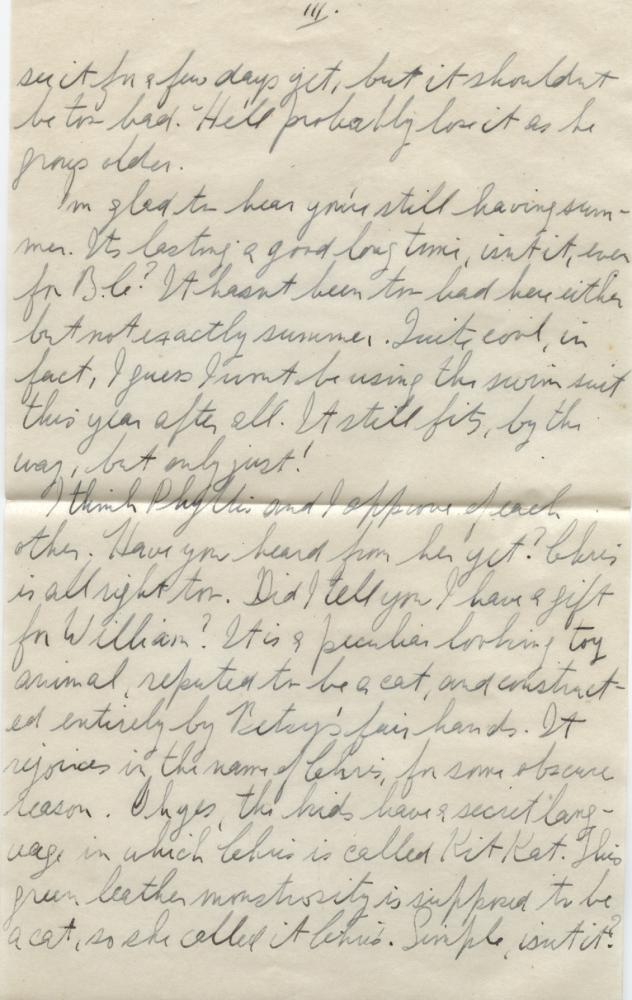 III.
see it for a few days yet, but it shouldnt
be too bad. He'll probably lose it as he
grows older.
I'm glad to hear you're still having sum-
mer. Its lasting a good long time, isnt it, even
for B.C.? It hasnt been too bad here either
but not exactly summer. Quite cool, in
fact, I guess I wont be using the swim suit
this year after all. It still fits, by the
way, but only just!
I think Phyllis and I approve of each
other. Have you heard from her yet? Chris
is all right too. Did I tell you I have a gift
for William? It is a peculiar looking toy
animal, reputed to be a cat, and construct-
ed entirely by Betsy's fair hands. It
rejoices in the name of Chris, for some obscure
reason. Oh yes, the kids have a secret lang-
uage in which Chris is called Kit Kat. This
green leather monstrosity is supposed to be
a cat, so she called it Chris. Simple, isnt it?